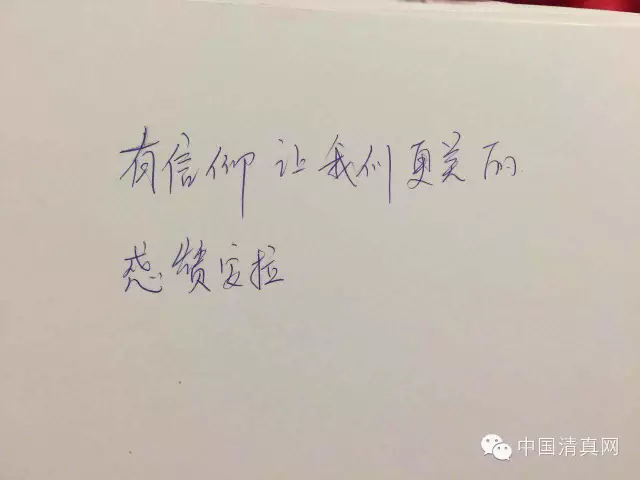 有信仰让我们更美的
感赞安拉
中国清真网